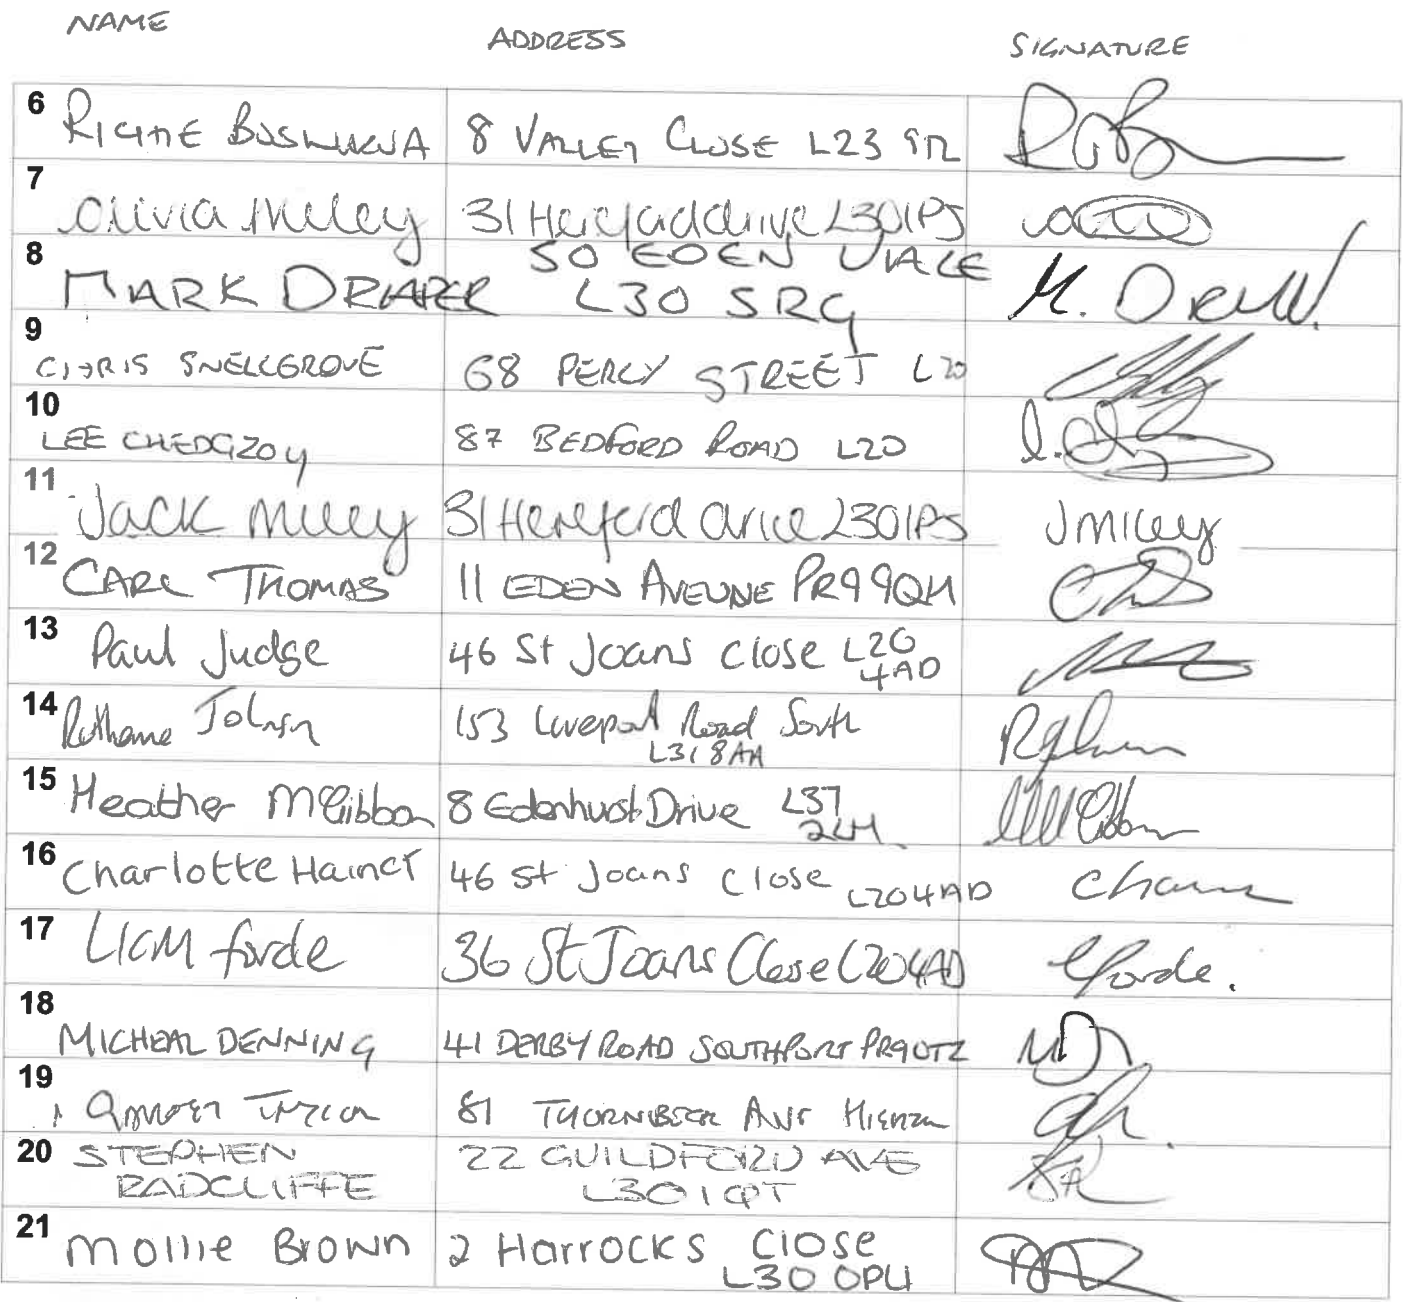 NAME ADDRESS SIGNATURE
6 RICHIE 8 VALLEY CLOSE L23
7 Olivia Miley 31 Hereford drive L30 1PS
50 EDEN VALE
8 MARK DRAPER L30 SRG M.
9 CHRIS SNELLGROVE 68 PERCY STREET L20
10 LEE CHEDGZOY 87 BEDFORD ROAD L20
11 Jack Miley 31 Hereford drive L30 1PS J Miley
12 CARL THOMAS 11 EDEN AVEUNE PR9 9QH
13 Paul Judge 46 St Joans Close L20
4AD
14 Ruthanne Johnson 153 Liverpool Road South
L31 8AA
15 Heather McGibbon 8 Edenhurst Drive L37
2LH
16 Charlotte 46 St Joans Close L20 4AD
17 Liam forde 36 St Joans Close L20 4AD forde.
18 MICHEAL DENNING 41 DERBY ROAD SOUTHPORT PR9 0TZ
19 81
20 STEPHEN 22 GUILDFORD AVE
RADCLIFFE L30 1QT
21 Mollie Brown 2 Harrocks Close
L30 0PU